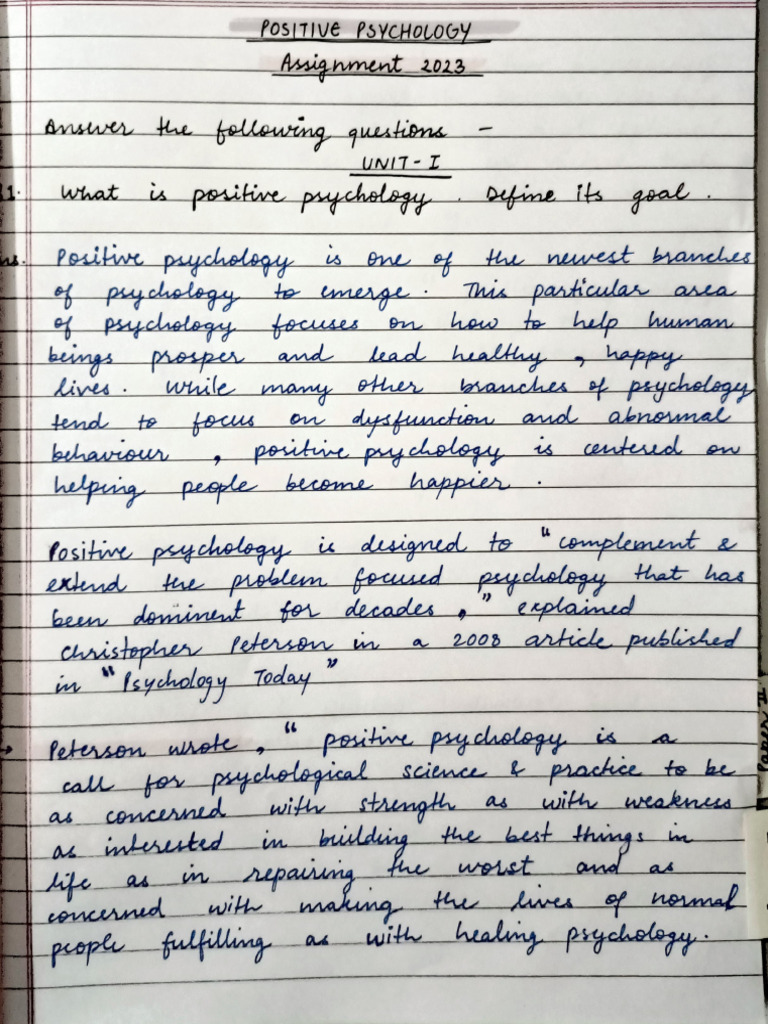 POSITIVE PSYCHOLOGY
Assignment 2023
Answer the following questions -
UNIT-I
1. What is positive psychology. Define its goal.
ns. Positive psychology is one of the newest branches
of psychology to emerge. This particular area
of psychology focuses on how to help human
beings prosper and lead healthy, happy
lives. While many other branches of psychology
tend to focus on dysfunction and abnormal
behaviour, positive psychology is centered on
helping people become happier.
Positive psychology is designed to "complement &
extend the problem focused psychology that has
been dominent for decades," explained
Christopher Peterson in a 2008 article published
in "Psychology Today"
→ Peterson wrote, "positive psychology is a
call for psychological science & practice to be
as concerned with strength as with weakness
as interested in building the best things in
life as in repairing the worst and as
concerned with making the lives of normal
people fulfilling as with healing psychology.
Paper II